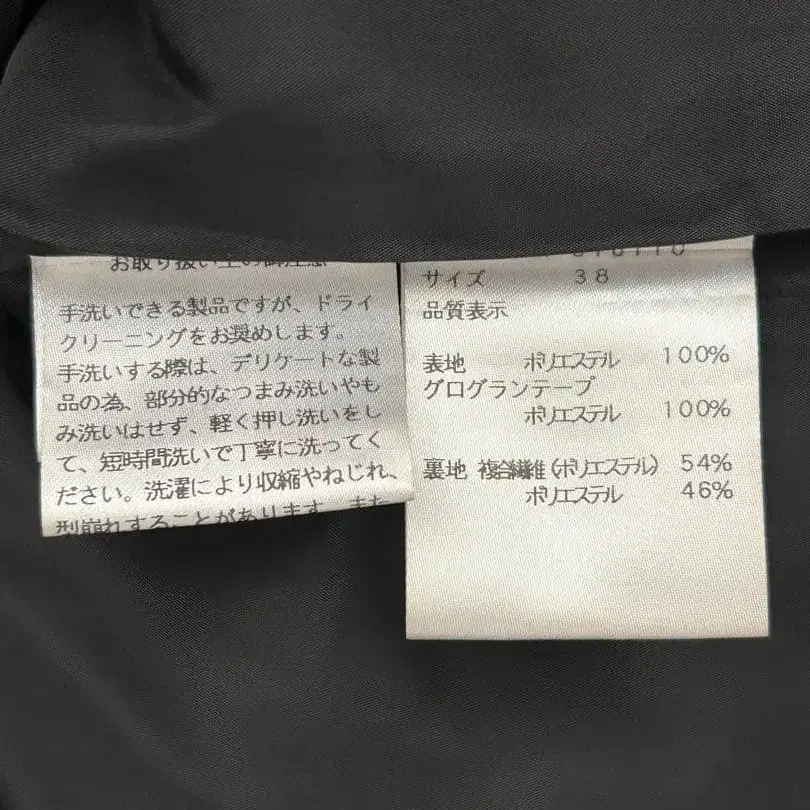 お取り扱い上の御注意
手洗いできる製品ですが、ドライ
クリーニングをお奨めします。
手洗いする際は、デリケートな製
品の為、部分的なつまみ洗いやも
み洗いはせず、軽く押し洗いをし
て、短時間洗いで丁寧に洗ってく
ださい。洗濯により収縮やねじれ、
型崩れすることがあります。また
サイズ 38
品質表示
表地 ポリエステル 100%
グログランテープ
ポリエステル 100%
裏地 複合繊維(ポリエステル) 54%
ポリエステル 46%